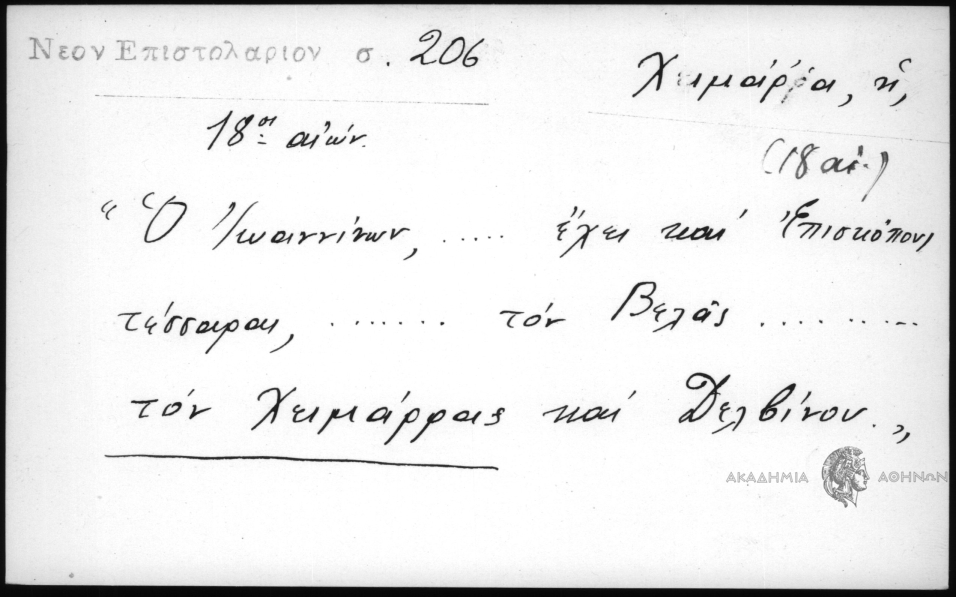 Νεον Επιστολαριον σ. 206
Χειμάρρα, ἡ,
18ος αἰών.
(18 αἰ.)
"Ὁ Ἰωαννίνων, ..... ἔχει καί Ἐπισκόπους
τέσσαρας, ........ τόν Βελᾶς ..........
τόν Χειμάρρας καί Δελβίνου."
ΑΚΑΔΗΜΙΑ ΑΘΗΝΩΝ